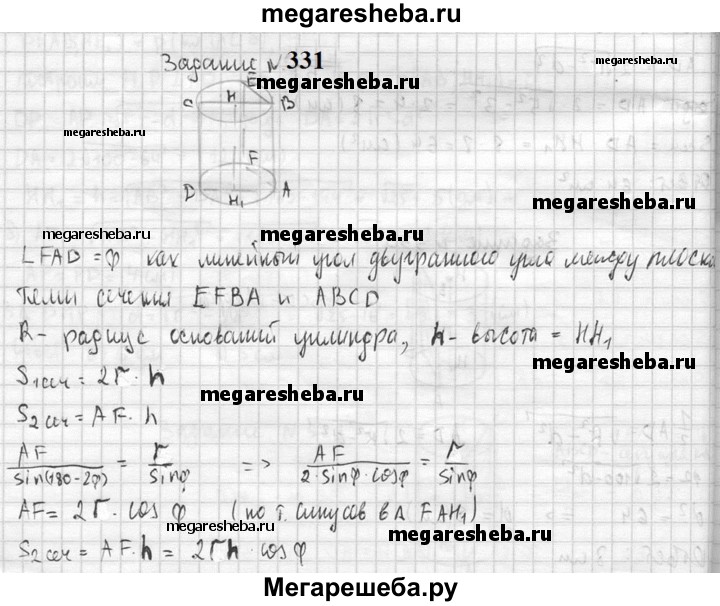 megaresheba.ru
Задание №331
megaresheba.ru
megaresheba.ru
megaresheba.ru
E
C H B
F
D H₁ A
megaresheba.ru
megaresheba.ru
∠FAD = φ как линейный угол двугранного угла между плоско
тями сечения EFBA и ABCD
R - радиус оснований цилиндра, h - высота = HH₁
megaresheba.ru
S₁сеч = 2r · h
megaresheba.ru
S₂сеч = AF · h
megaresheba.ru
AF/sin(180-2φ) = r/sinφ => AF/2·sinφ·cosφ = r/sinφ
AF = 2r · cos φ (по т. синусов в Δ FAH₁)
megaresheba.ru
megaresheba.ru
S₂сеч = AF·h = 2rh · cos φ
megaresheba.ru
Мегарешеба.ру